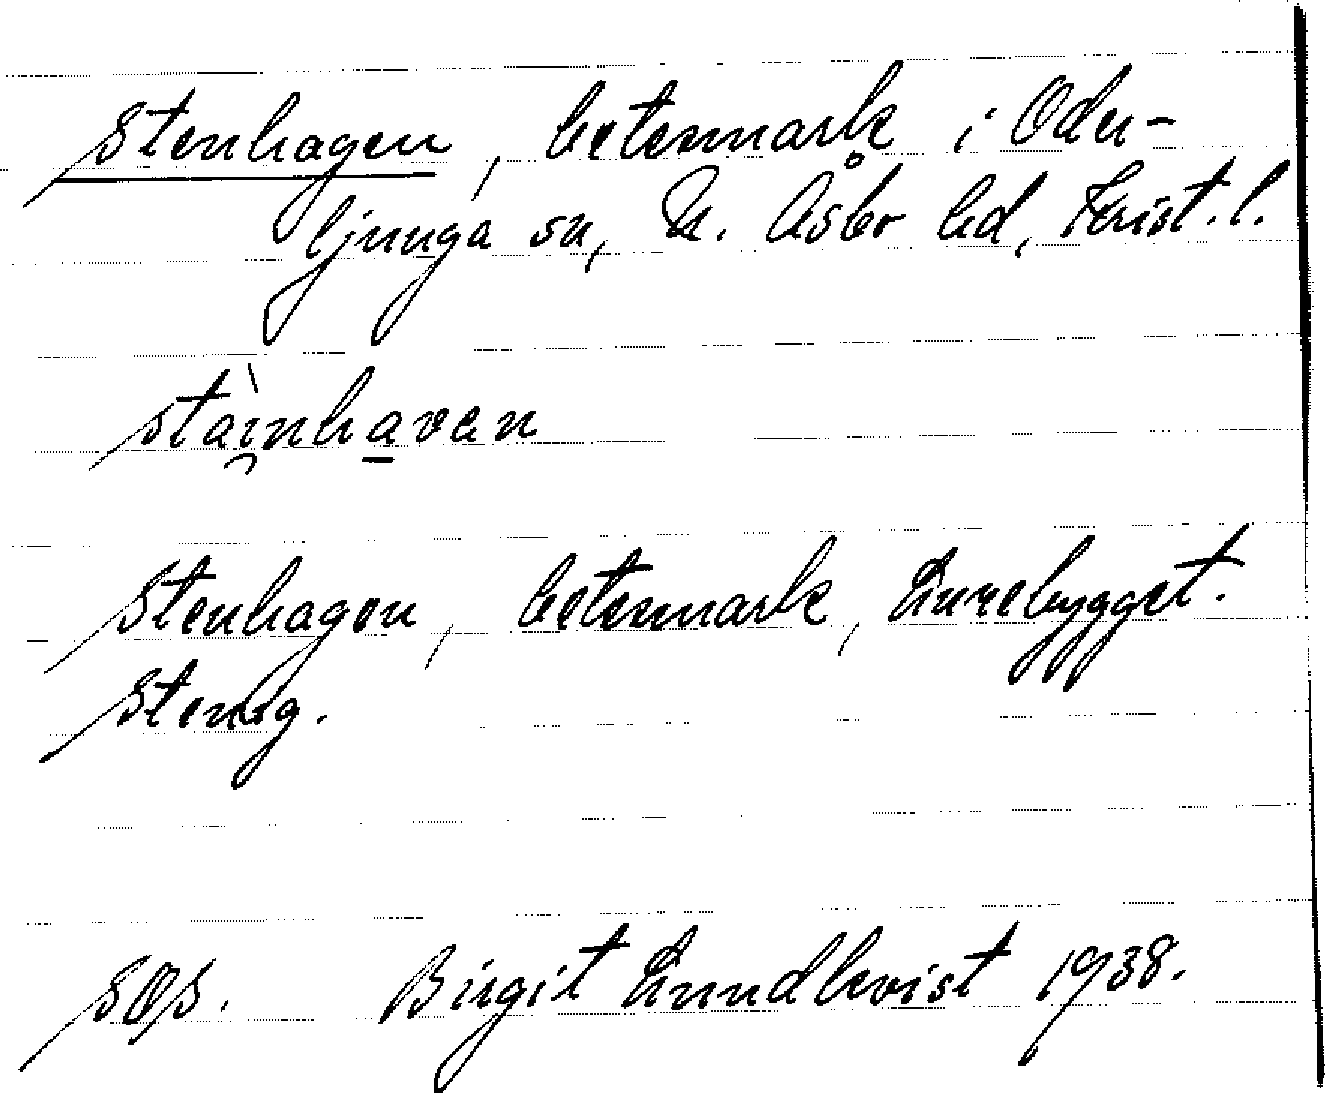 Stenhagen, betesmark i Oder-
ljunga sn, N. Åsbo hd, Krist. l.
stàin̯havan
Stenhagen, betesmark, Lurebygget.
Stenig.
SOS. Birgit Lundkvist 1938.